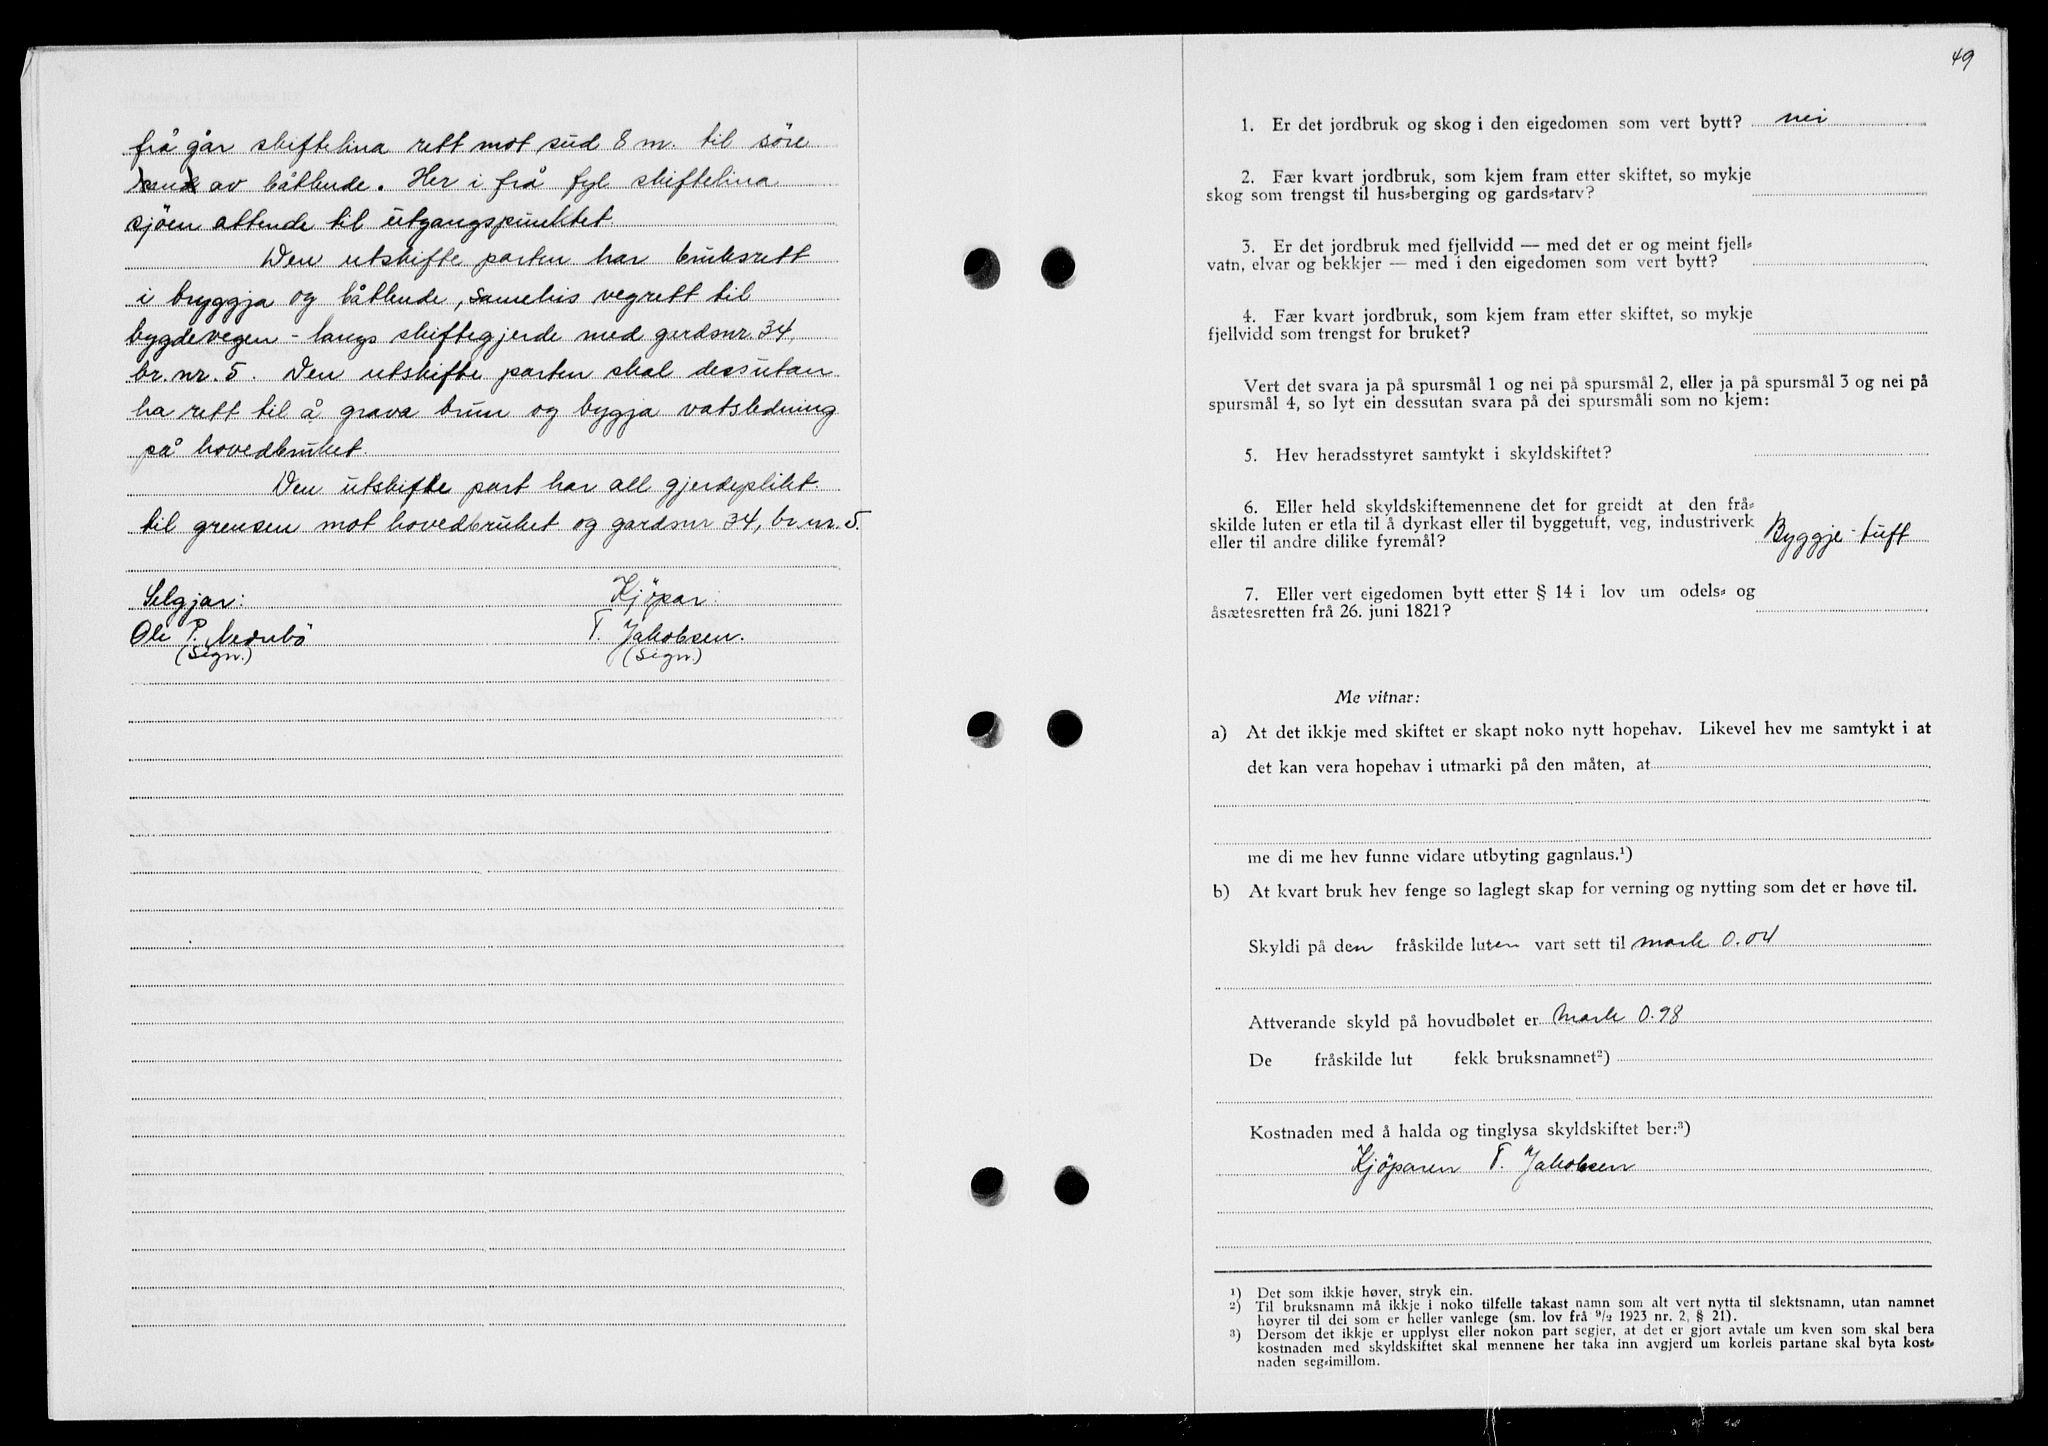 frå går skiftelina rett mot sud 8 m. til söre
av båtlende. Her i frå fyl skiftelina
sjöen attende til utgangspunktet.
Den utskifte parten har bruksrett
i bryggja og båtlende, sameleis vegrett til
bygdevegen - langs skiftegjerde med gardsnr. 34,
br. nr. 5. Den utskifte parten skal dessutan
ha rett til å grava brun og byggja vatsledning
på hovedbruket.
Den utskifte part har all gjerdeplikt
til grensen mot hovedbruket og gardsnr 34, br. nr. 5.
Selgjar: Kjöpar:
Ole P. T. Jakobsen.
(sign.) (sign)
49
1. Er det jordbruk og skog i den eigedomen som vert bytt? nei
2. Fær kvart jordbruk, som kjem fram etter skiftet, so mykje
skog som trengst til hus-berging og gards-tarv?
3. Er det jordbruk med fjellvidd — med det er og meint fjell-
vatn, elvar og bekkjer — med i den eigedomen som vert bytt?
4. Fær kvart jordbruk, som kjem fram etter skiftet, so mykje
fjellvidd som trengst for bruket?
Vert det svara ja på spursmål 1 og nei på spursmål 2, eller ja på spursmål 3 og nei på
spursmål 4, so lyt ein dessutan svara på dei spursmåli som no kjem:
5. Hev heradsstyret samtykt i skyldskiftet?
6. Eller held skyldskiftemennene det for greidt at den frå-
skilde luten er etla til å dyrkast eller til byggetuft, veg, industriverk
eller til andre dilike fyremål? Byggje-tuft
7. Eller vert eigedomen bytt etter § 14 i lov um odels- og
åsætesretten frå 26. juni 1821?
Me vitnar:
a) At det ikkje med skiftet er skapt noko nytt hopehav. Likevel hev me samtykt i at
det kan vera hopehav i utmarki på den måten, at
me di me hev funne vidare utbyting gagnlaus.¹)
b) At kvart bruk hev fenge so laglegt skap for verning og nytting som det er høve til.
Skyldi på den fråskilde luten vart sett til mark 0.04
Attverande skyld på hovudbølet er mark 0.98
De fråskilde lut fekk bruksnamnet²)
Kostnaden med å halda og tinglysa skyldskiftet ber:³)
Kjöparen T. Jakobsen
¹) Det som ikkje høver, stryk ein.
²) Til bruksnamn må ikkje i noko tilfelle takast namn som alt vert nytta til slektsnamn, utan namnet
høyrer til dei som er heller vanlege (sm. lov frå 9/2 1923 nr. 2, § 21).
³) Dersom det ikkje er upplyst eller nokon part segjer, at det er gjort avtale um kven som skal bera
kostnaden med skyldskiftet skal mennene her taka inn avgjerd um korleis partane skal byta kost-
naden seg-imillom.